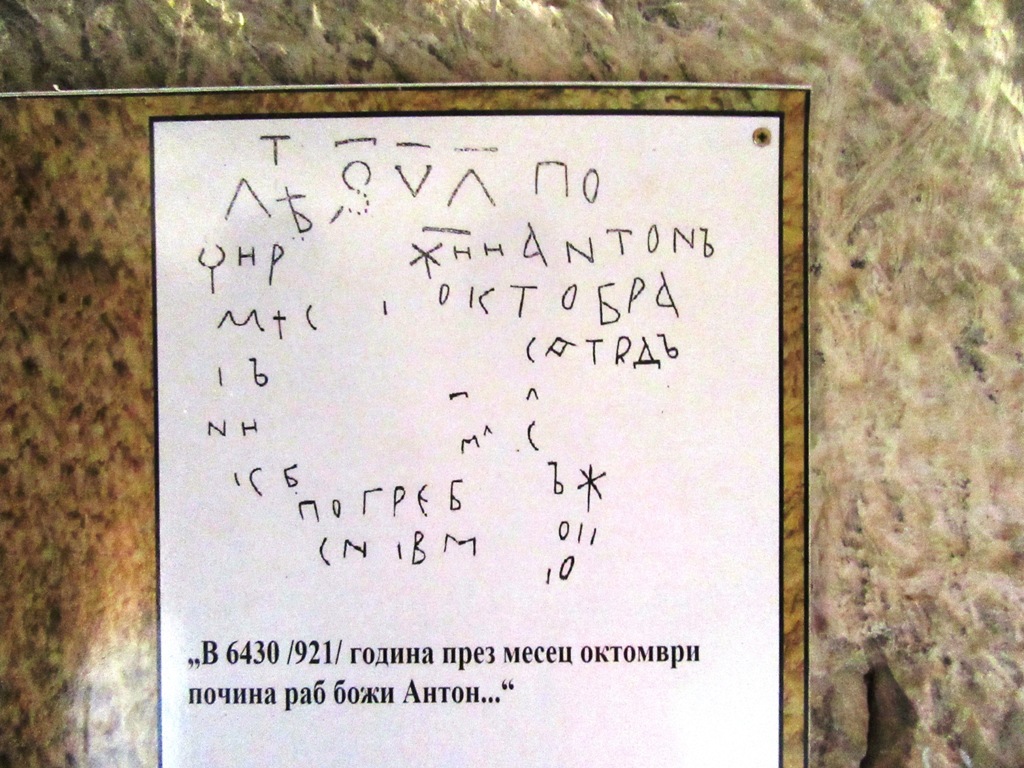 Т
ЛѢ Ѕ V Л ПО
ЧНР ЖННАNТОNЪ
М†С І ОКТОБРА
С ТRДЪ
І Ъ
NН М^ С
ІСБ Ъ Ж
ПОГРЄБ
СN ІВМ ОІІ
ІО
„В 6430 /921/ година през месец октомври
почина раб божи Антон...“